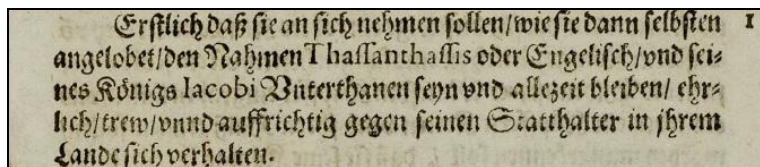 Erſtlich daß ſie an ſich nehmen ſollen/wie ſie dann ſelbſten 1
angelobet/den Nahmen Thaſſanthaſſis oder Engeliſch/vnd ſei⸗
nes Königs Iacobi Vnterthanen ſeyn vnd allezeit bleiben/ ehr⸗
lich/trew/vnnd auffrichtig gegen ſeinen Statthalter in jhrem
Lande ſich verhalten.